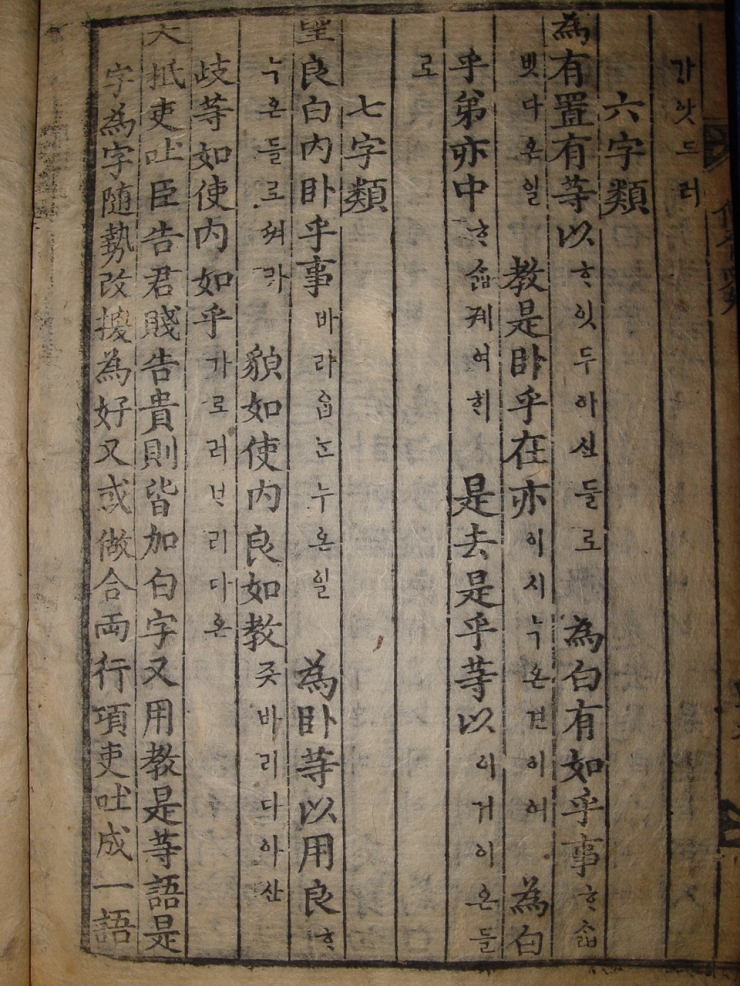 가얏드러
六字類
為有置有等以ᄒᆞ잇두아신들로 為白有如乎事ᄒᆞᄉᆞᆲ
벗다온일 教是卧乎在亦이시누온견이여 為白
乎弟亦中ᄒᆞᄉᆞᆲ제여희 是去是乎等以이거이온들
로
七字類
望良白內卧乎事바라ᄉᆞᆲ누온일 為卧等以用良ᄒᆞ
누온들로ᄡᅥ라 貌如使內良如教즛바리다아산
歧等如使內如乎가로러브리다온
大抵吏吐臣告君賤告貴則皆加白字又用教是等語是
字為字随勢改援為好又或做合両行項吏吐成一語